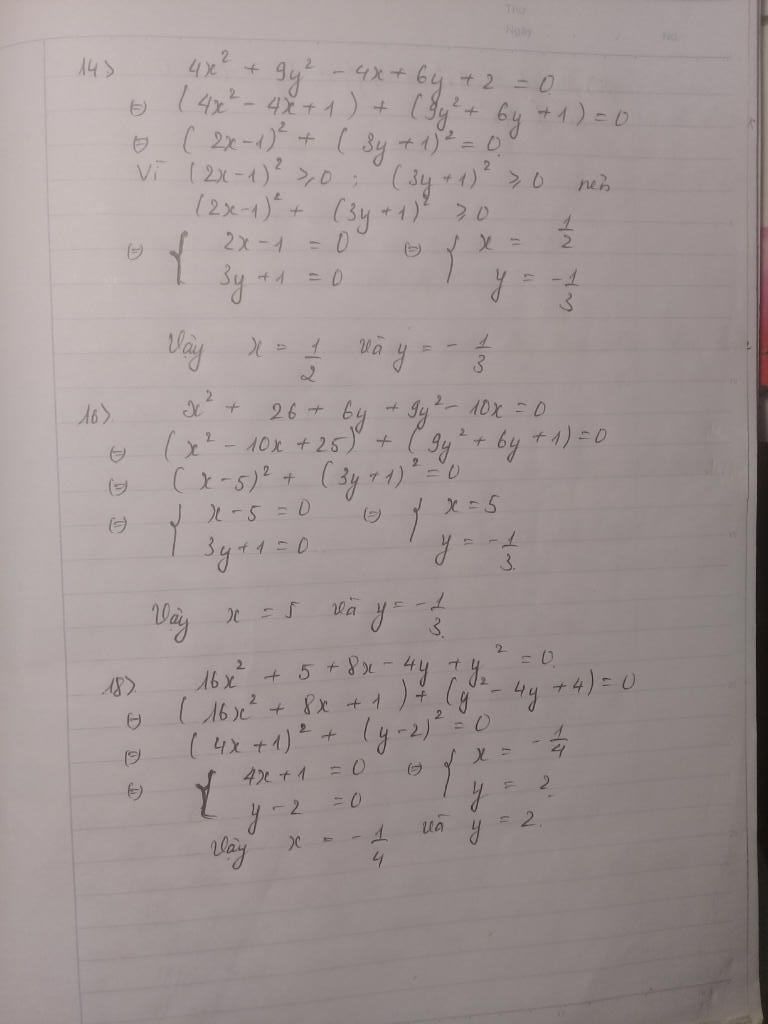 Thứ
Ngày No.
14> 4x² + 9y² - 4x + 6y + 2 = 0
⇔ (4x² - 4x + 1) + (9y² + 6y + 1) = 0
⇔ (2x-1)² + (3y+1)² = 0.
Vì (2x-1)² ⩾ 0 ; (3y+1)² ⩾ 0 nên
(2x-1)² + (3y+1)² ⩾ 0
⇔ { 2x-1 = 0 ⇔ { x = 1/2
3y+1 = 0 y = -1/3
Vậy x = 1/2 và y = -1/3
16> x² + 26 + 6y + 9y² - 10x = 0
⇔ (x² - 10x + 25) + (9y² + 6y + 1) = 0
⇔ (x-5)² + (3y+1)² = 0
⇔ { x-5 = 0 ⇔ { x = 5
3y+1 = 0 y = -1/3.
Vậy x = 5 và y = -1/3.
18> 16x² + 5 + 8x - 4y + y² = 0.
⇔ (16x² + 8x + 1) + (y² - 4y + 4) = 0
⇔ (4x+1)² + (y-2)² = 0
⇔ { 4x+1 = 0 ⇔ { x = -1/4
y-2 = 0 y = 2.
Vậy x = -1/4 và y = 2.